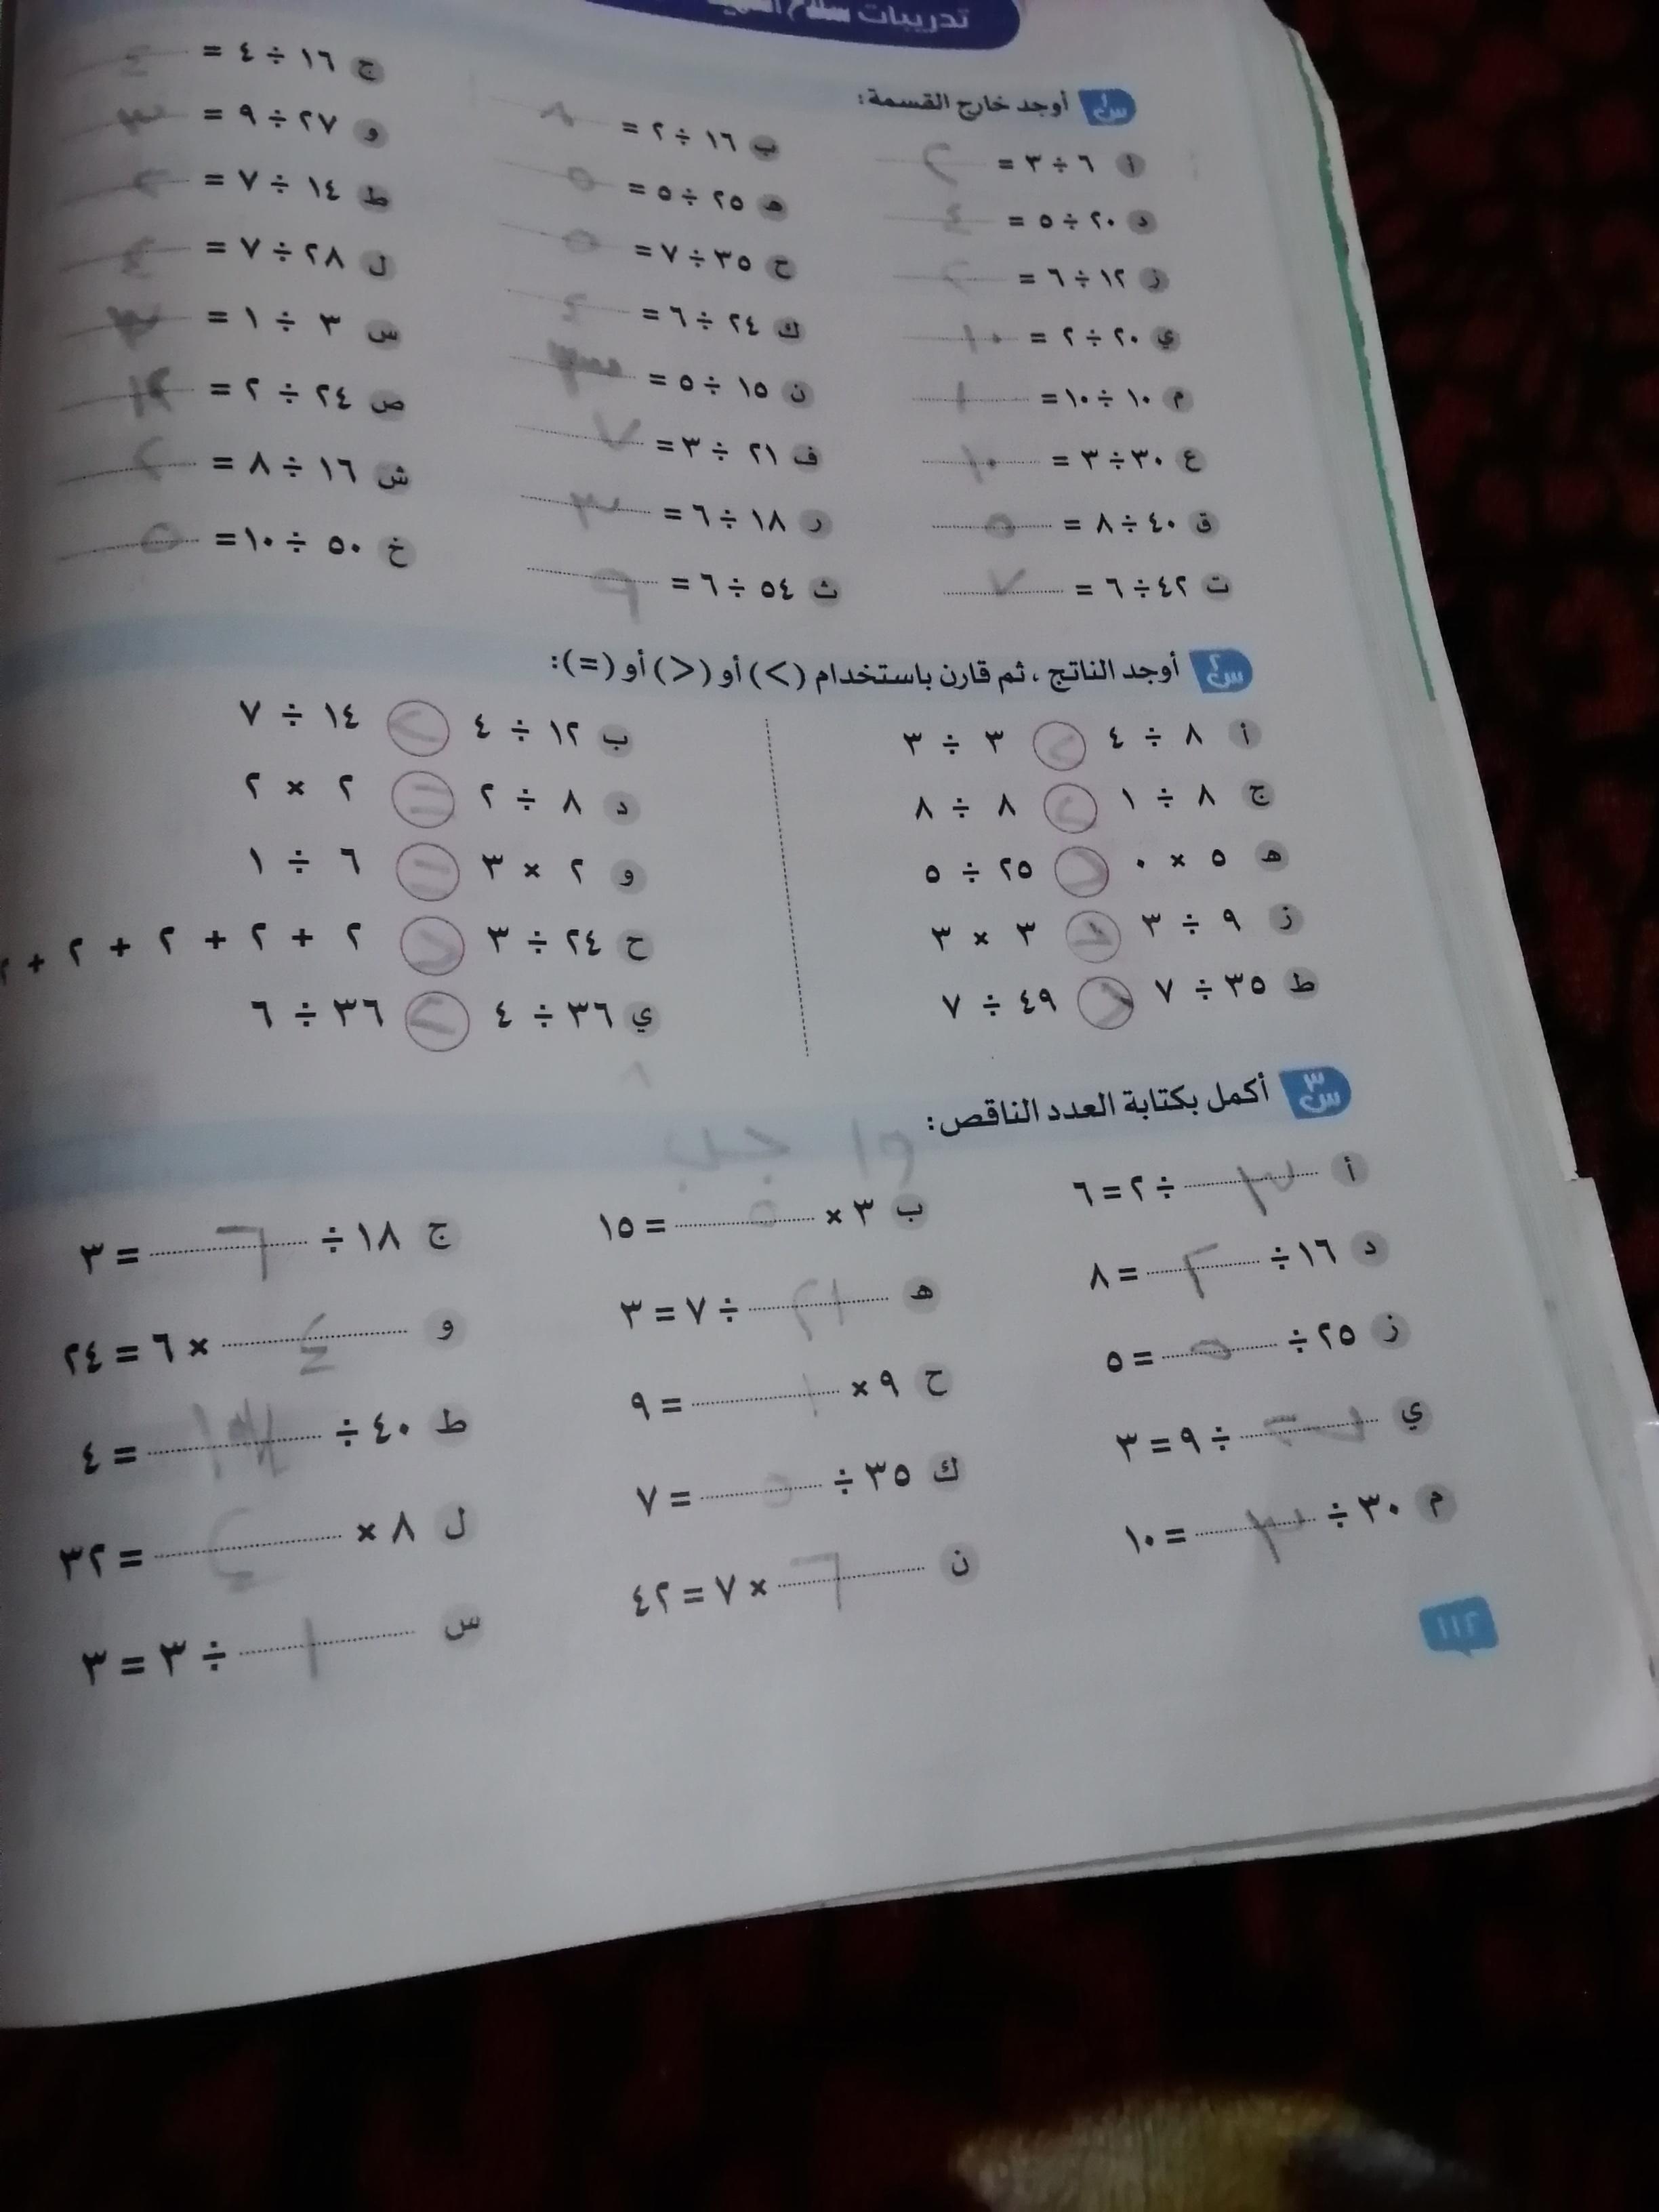 تدريبات سلاح
س١ أوجد خارج القسمة:
أ ٦ ÷ ٣ = ٢ ب ١٦ ÷ ٢ = ٨ ج ١٦ ÷ ٤ = ٤
د ٢٠ ÷ ٥ = ٤ هـ ٢٥ ÷ ٥ = ٥ و ٢٧ ÷ ٩ = ٣
ز ١٢ ÷ ٦ = ٢ ح ٣٥ ÷ ٧ = ٥ ط ١٤ ÷ ٧ = ٢
ي ٢٠ ÷ ٢ = ١٠ ك ٢٤ ÷ ٦ = ٤ ل ٢٨ ÷ ٧ = ٤
م ١٠ ÷ ١٠ = ١ ن ١٥ ÷ ٥ = ٣ س ٣ ÷ ١ = ٣
ع ٣٠ ÷ ٣ = ١٠ ف ٢١ ÷ ٣ = ٧ ص ٢٤ ÷ ٢ = ١٢
ق ٤٠ ÷ ٨ = ٥ ر ١٨ ÷ ٦ = ٣ ش ١٦ ÷ ٨ = ٢
ت ٤٢ ÷ ٦ = ٧ ث ٥٤ ÷ ٦ = ٩ خ ٥٠ ÷ ١٠ = ٥
س٢ أوجد الناتج ، ثم قارن باستخدام (>) أو (<) أو (=):
أ ٨ ÷ ٤ ٣ ÷ ٣ ب ١٢ ÷ ٤ ١٤ ÷ ٧
ج ٨ ÷ ١ ٨ ÷ ٨ د ٨ ÷ ٢ = ٢ × ٢
هـ ٥ × ٠ ٢٥ ÷ ٥ و ٢ × ٣ = ٦ ÷ ١
ز ٩ ÷ ٣ ٣ × ٣ ح ٢٤ ÷ ٣ ٢ + ٢ + ٢ + ٢ +
ط ٣٥ ÷ ٧ ٤٩ ÷ ٧ ي ٣٦ ÷ ٤ ٣٦ ÷ ٦
٨
س٣ أكمل بكتابة العدد الناقص:
واجب
أ ٣ ÷ ٢ = ٦ ب ٣ × ٥ = ١٥ ج ١٨ ÷ ٦ = ٣
د ١٦ ÷ ٢ = ٨ هـ ٢١ ÷ ٧ = ٣ و ٤ × ٦ = ٢٤
ز ٢٥ ÷ ٥ = ٥ ح ٩ × ١ = ٩ ط ٤٠ ÷ = ٤
ي ÷ ٩ = ٣ ك ٣٥ ÷ ٥ = ٧ ل ٨ × ٤ = ٣٢
م ٣٠ ÷ ٣ = ١٠ ن ٦ × ٧ = ٤٢ س ١ ÷ ٣ = ٣
١١٢